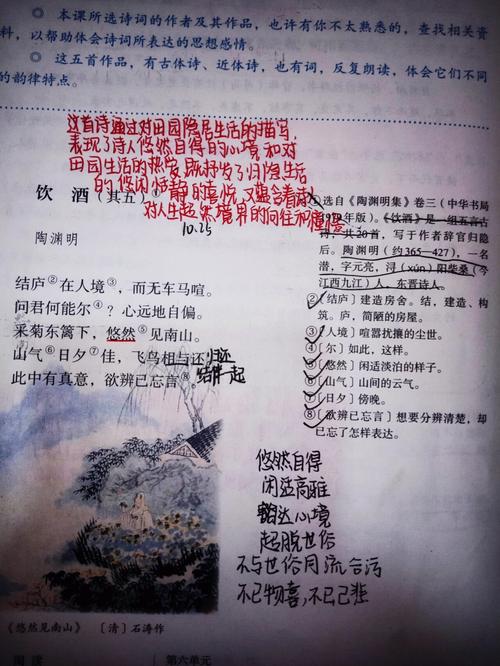 ◎ 本课所选诗词的作者及其作品，也许有你不太熟悉的，查找相关资
料，以帮助体会诗词所表达的思想感情。
◎ 这五首作品，有古体诗、近体诗，也有词，反复朗读，体会它们不同
的韵律特点。
这首诗通过对田园隐居生活的描写
表现了诗人悠然自得的心境和对
田园生活的热爱，既抒发了归隐生活
的悠闲恬静的喜悦，又蕴含着诗
对人生超然境界的向往和憧憬
10.25
饮 酒（其五）①
陶渊明
结庐②在人境③，而无车马喧。
问君何能尔④？心远地自偏。
采菊东篱下，悠然⑤见南山。
山气⑥日夕⑦佳，飞鸟相与还。归还
结伴一起
此中有真意，欲辨已忘言⑧。
①选自《陶渊明集》卷三（中华书局
1979年版）。《饮酒》是一组五言古
诗，共20首，写于作者辞官归隐
后。陶渊明（约365—427），一名
潜，字元亮，浔（xún）阳柴桑（今
江西九江）人，东晋诗人。
②〔结庐〕建造房舍。结，建造、构
筑。庐，简陋的房屋。
③〔人境〕喧嚣扰攘的尘世。
④〔尔〕如此，这样。
⑤〔悠然〕闲适淡泊的样子。
⑥〔山气〕山间的云气。
⑦〔日夕〕傍晚。
⑧〔欲辨已忘言〕想要分辨清楚，却
已忘了怎样表达。
悠然自得
闲适高雅
豁达心境
超脱世俗
不与世俗同流合污
不已物喜，不已己悲
《悠然见南山》〔清〕石涛作
阅 读 第六单元